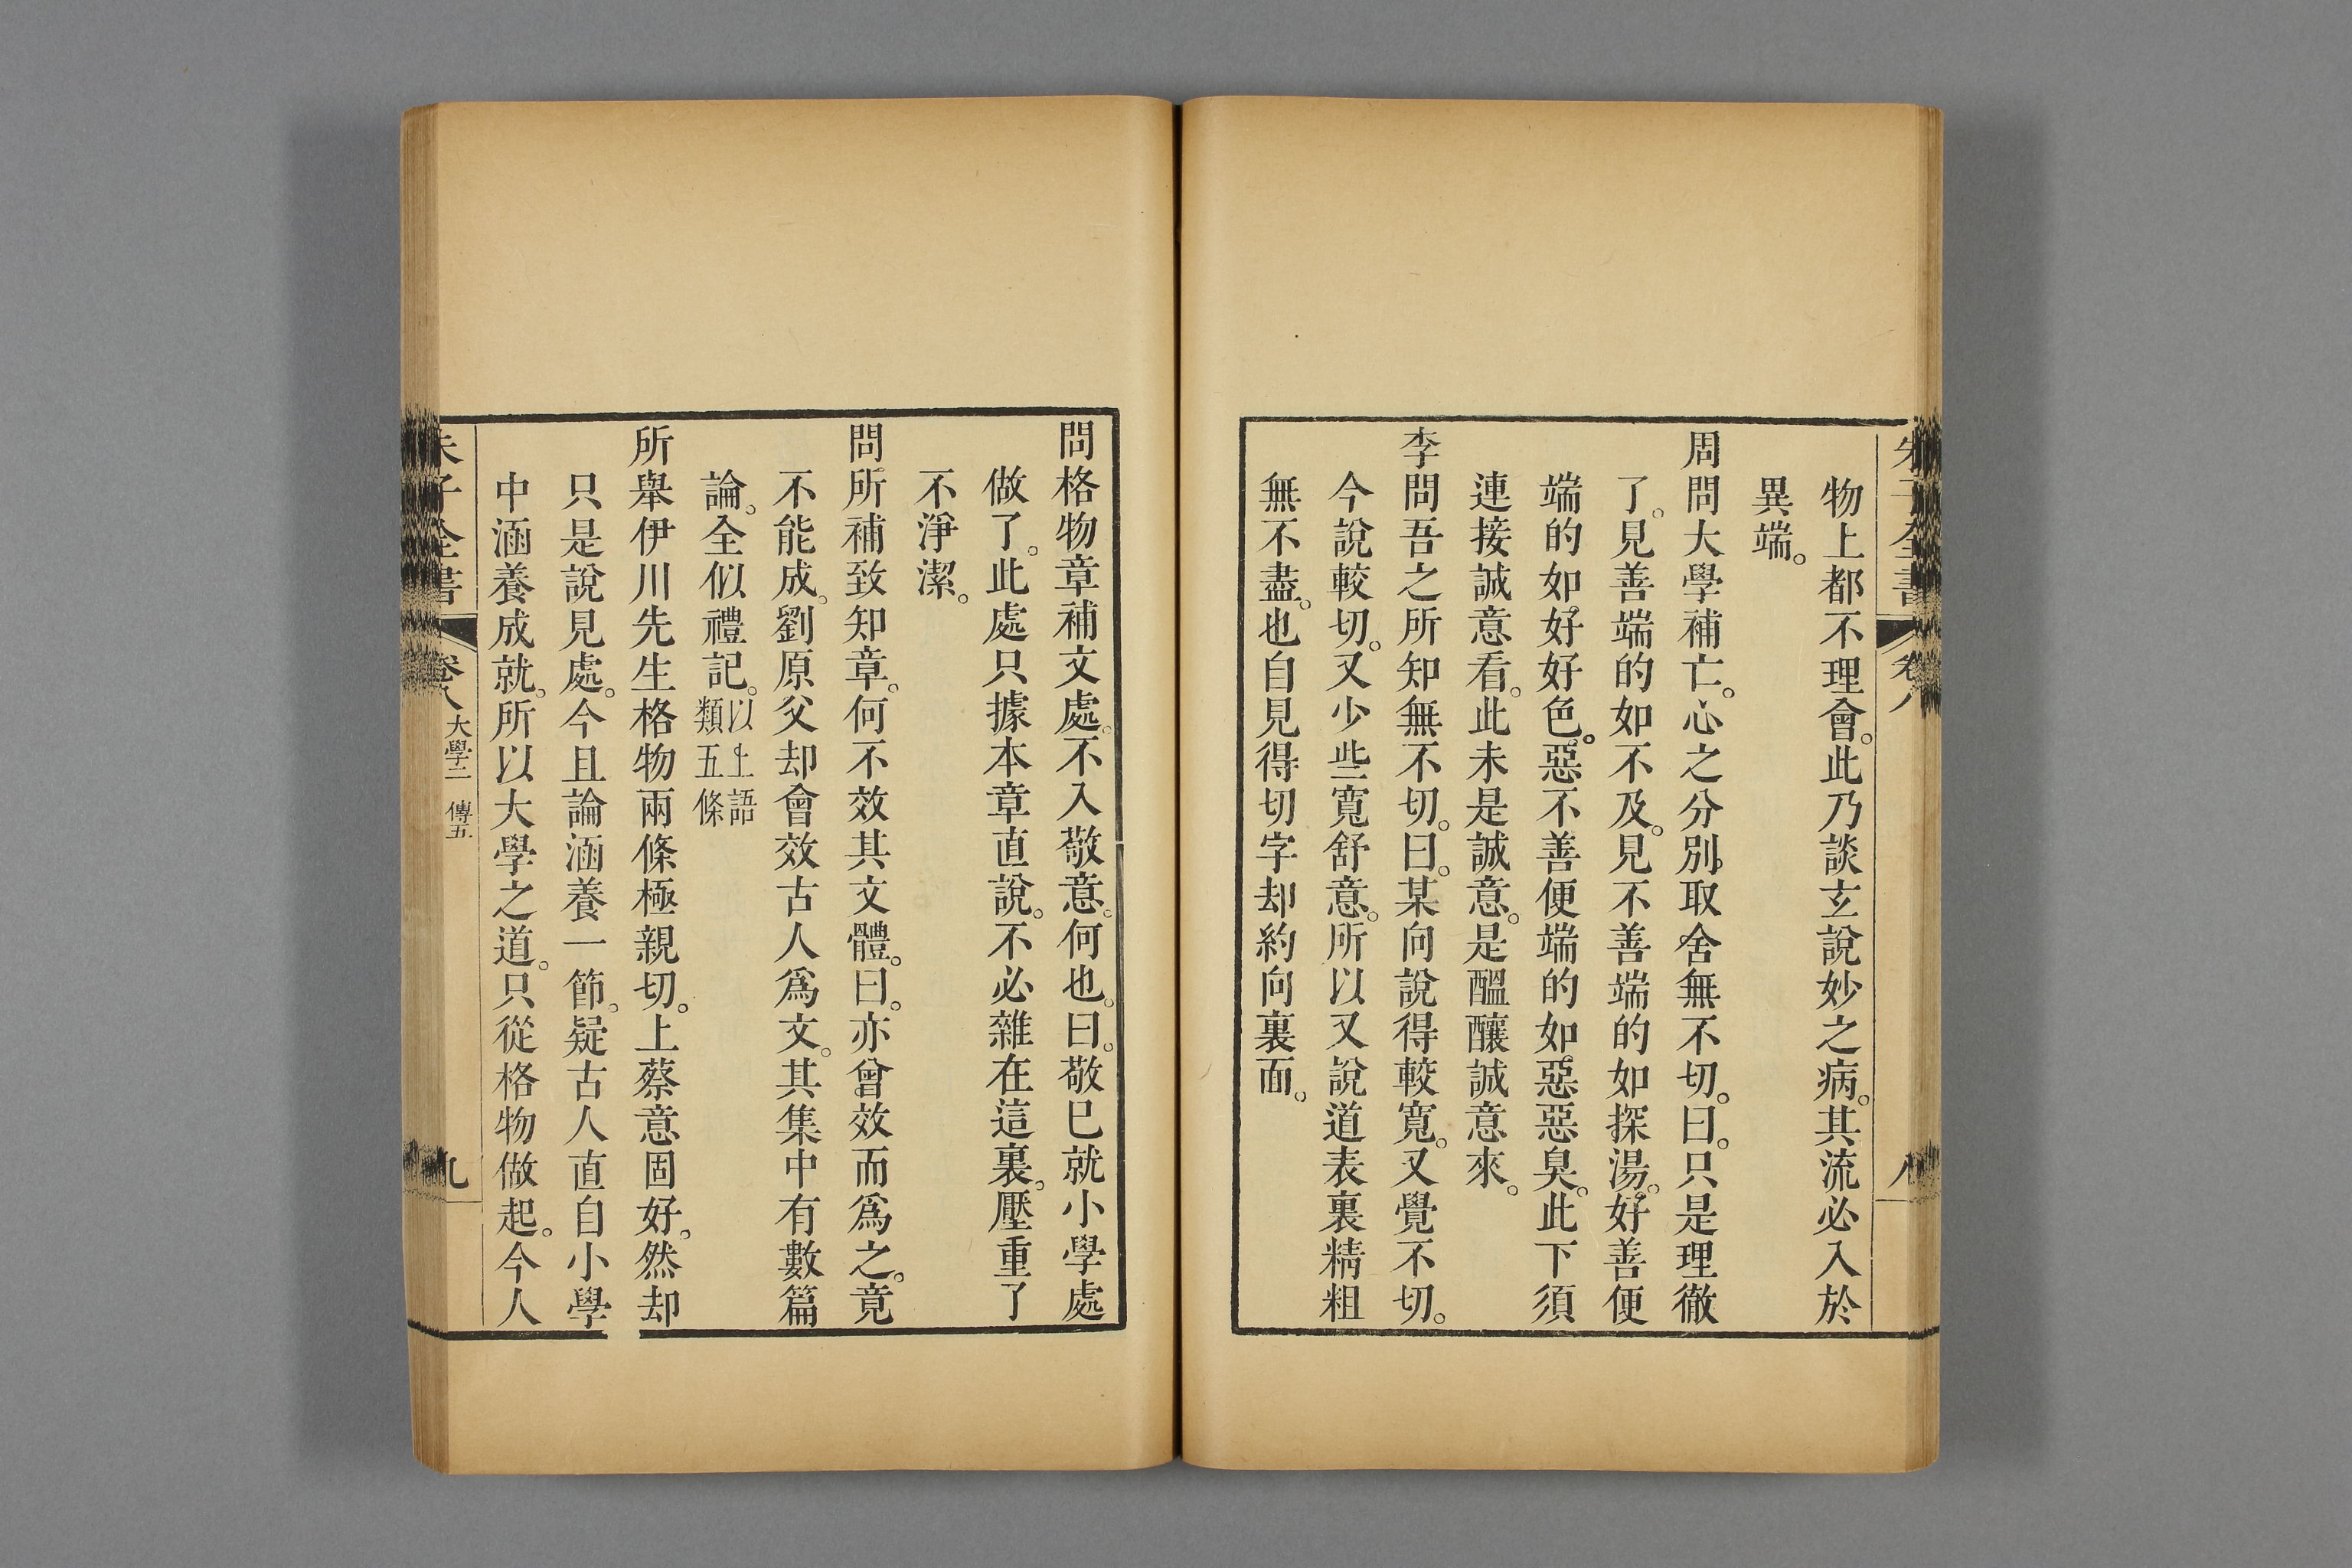 朱子全書 卷八 八
物上都不理會。此乃談玄說妙之病。其流必入於
異端。
周問大學補亡。心之分別取舍無不切。曰。只是理徹
了。見善端的如不及。見不善端的如探湯。好善便
端的如好好色。惡不善便端的如惡惡臭。此下須
連接誠意看。此未是誠意。是醞釀誠意來。
李問吾之所知無不切。曰。某向說得較寬。又覺不切。
今說較切。又少些寬舒意。所以又說道表裏精粗
無不盡。也自見得切字却約向裏面。
問格物章補文處。不入敬意。何也。曰。敬已就小學處
做了。此處只據本章直說。不必雜在這裏。壓重了
不淨潔。
問所補致知章。何不效其文體。曰。亦曾效而爲之。竟
不能成。劉原父却會效古人爲文。其集中有數篇
論。全似禮記。以上語類五條
所舉伊川先生格物兩條極親切。上蔡意固好。然却
只是說見處。今且論涵養一節。疑古人直自小學
中涵養成就。所以大學之道。只從格物做起。今人
朱子全書 卷八 大學二 傳五 九